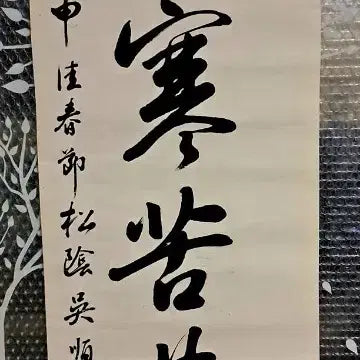 寒苦
申佳春節松陰吳順